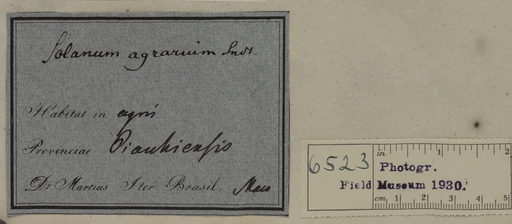 Solanum agrarium Sndt.
Habitat in agris
Provinciae Piauhiensis
Dr Martius Iter Brasil. Majo
in. 1 2
6523 Photogr.
Field Museum 1930.
cm. 1 2 3 4 5